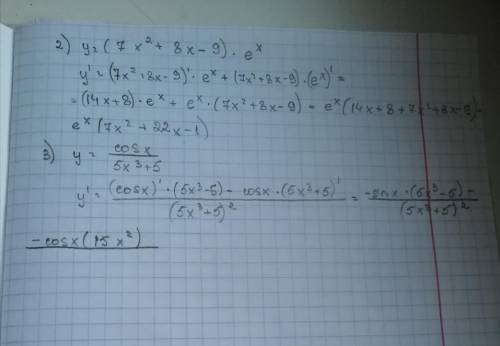 2) y = (7x² + 8x - 9) · eˣ
y' = (7x² + 8x - 9)' · eˣ + (7x² + 8x - 9) · (eˣ)' =
= (14x + 8) · eˣ + eˣ · (7x² + 8x - 9) = eˣ(14x + 8 + 7x² + 8x - 9) =
eˣ(7x² + 22x - 1)
3) y = cosx / 5x³ + 5
y' = (cosx)' · (5x³ - 5) - cosx · (5x³ + 5)' / (5x³ + 5)² = -sinx · (5x³ - 5) - / (5x³ + 5)²
- cosx(15x²)